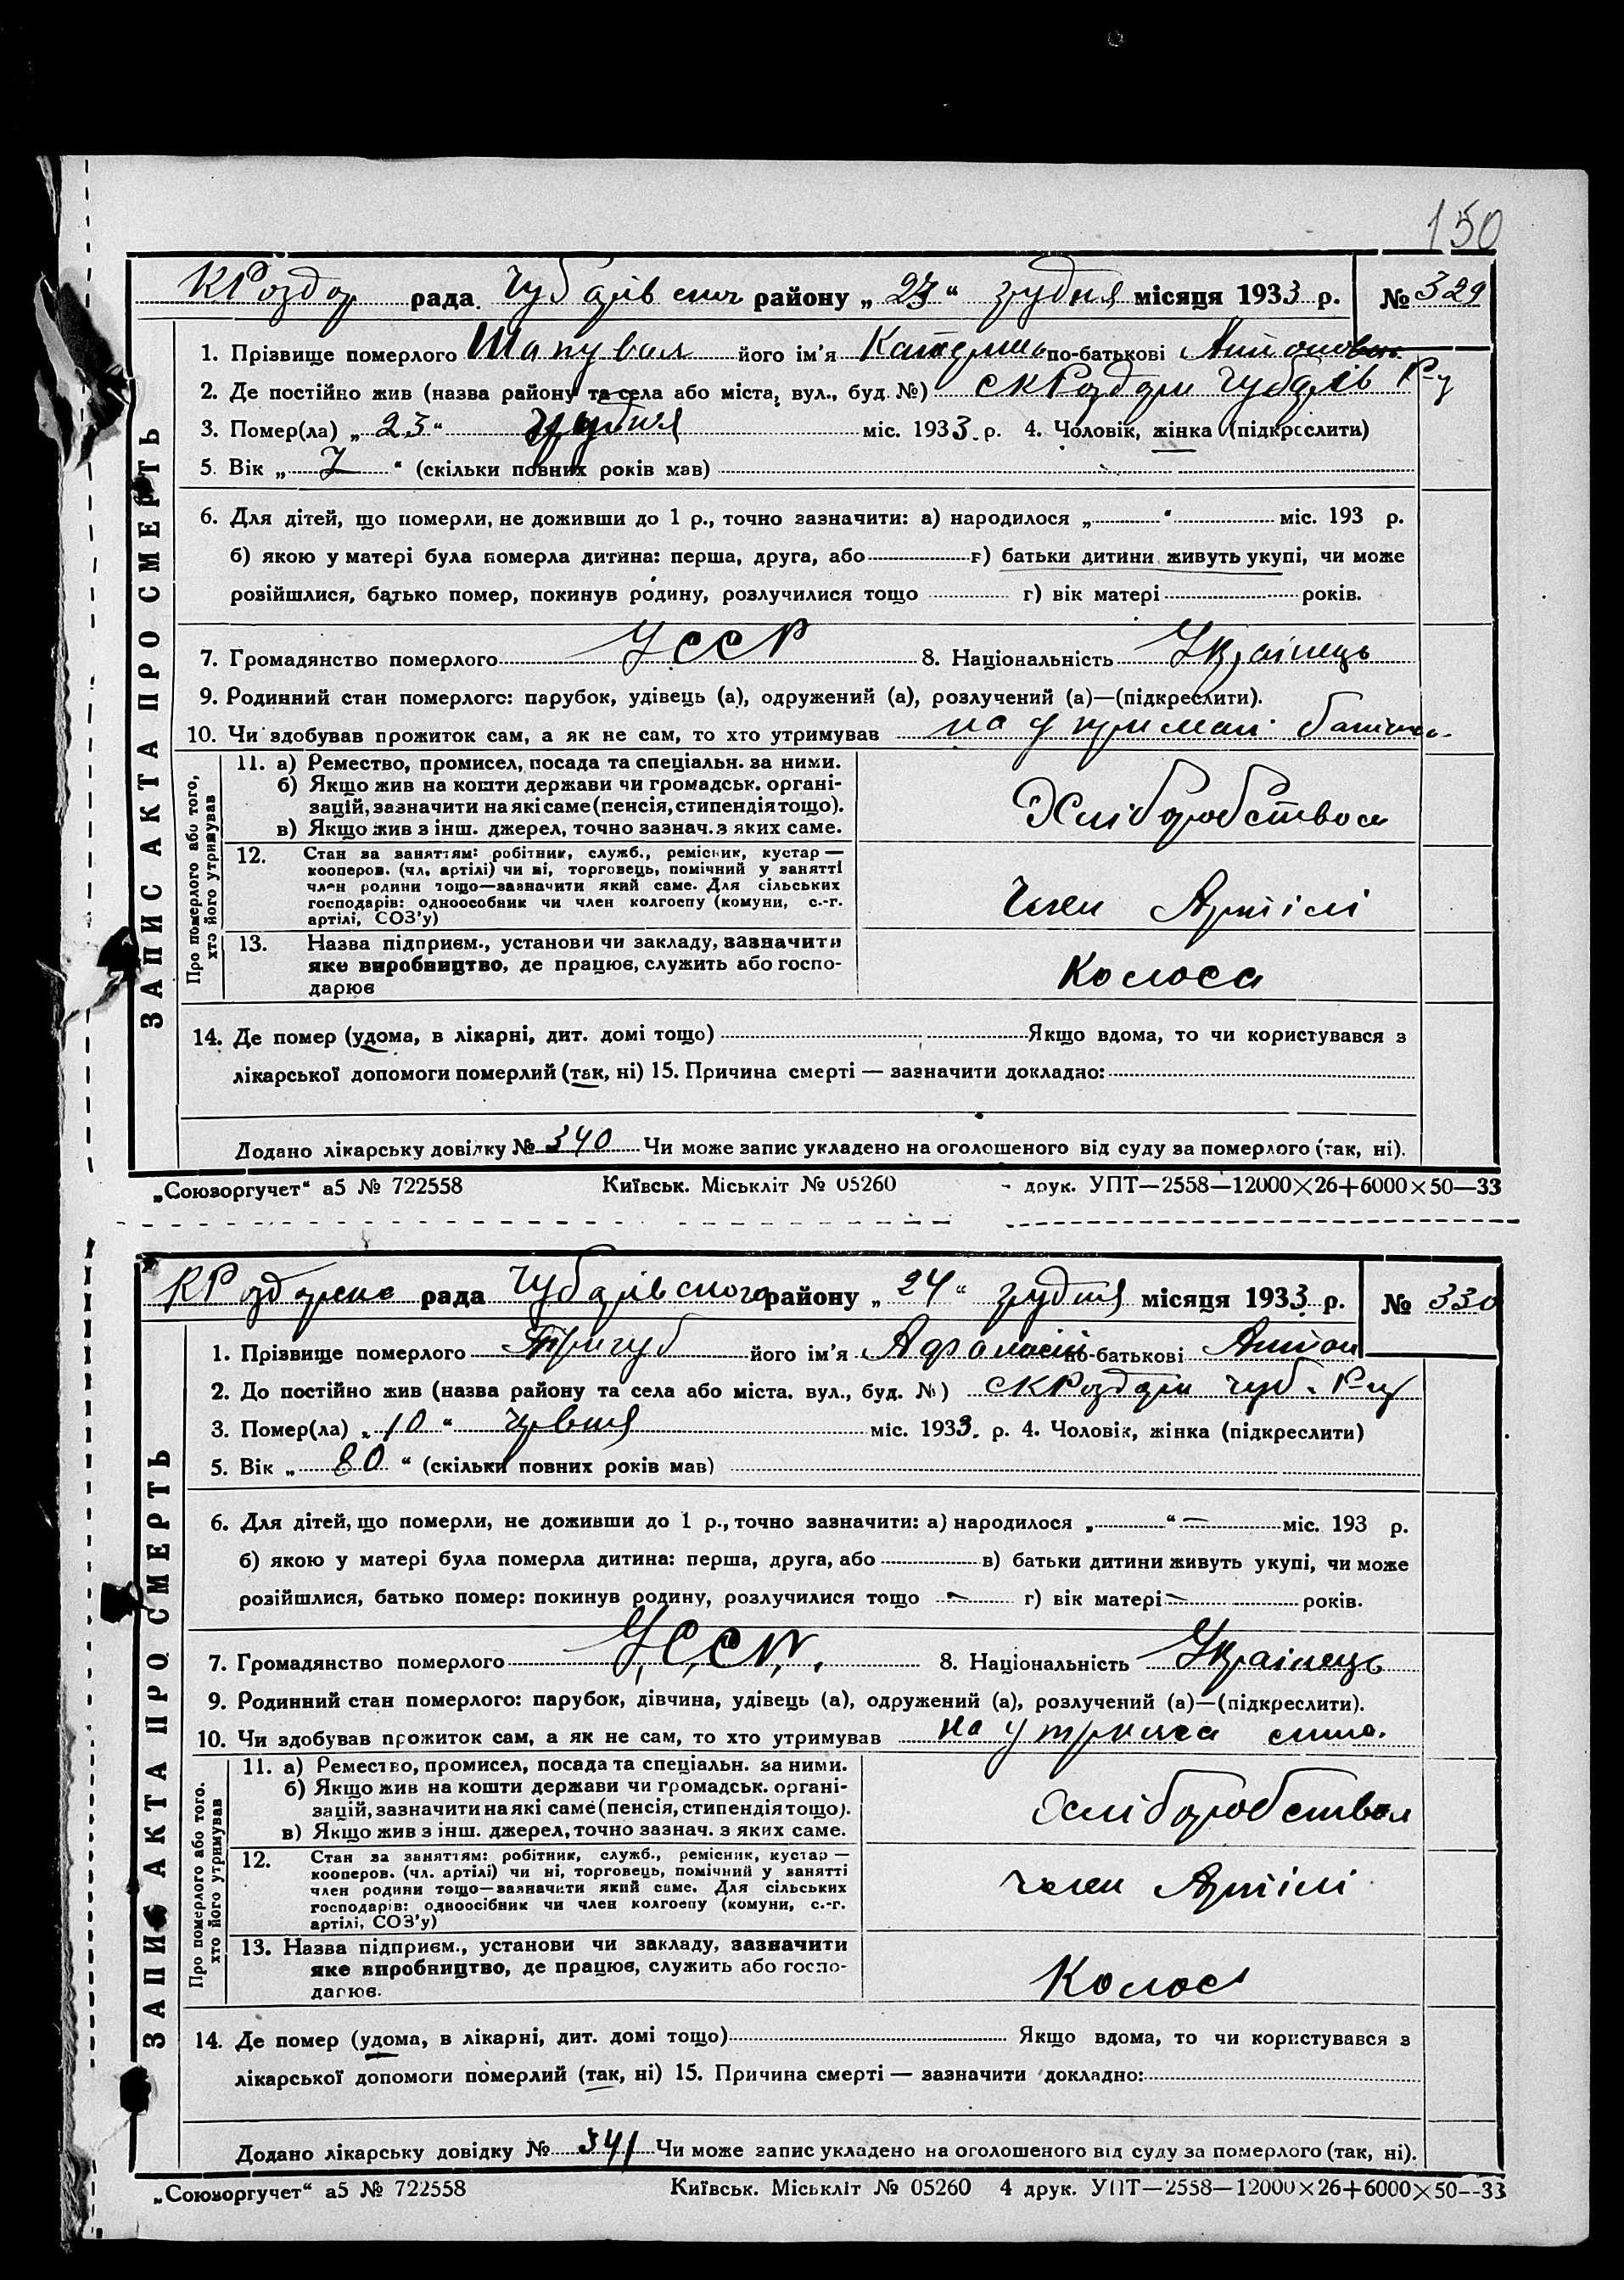 150
КРоздор рада Чубарівськ району „23“ грудня місяця 1933 р. № 329
ЗАПИС АКТА ПРО СМЕРТЬ
1. Прізвище померлого Шаповал його ім’я по-батькові Антонов
2. Де постійно жив (назва району та села або міста, вул., буд. №) с КРоздори Чубарів Р-у
3. Помер(ла) „23“ грудня міс. 1933. р. 4. Чоловік, жінка (підкреслити)
5. Вік „7“ (скільки повних років мав)
6. Для дітей, що померли, не доживши до 1 р., точно зазначити: а) народилося „ “ міс. 193 р.
б) якою у матері була померла дитина: перша, друга, або в) батьки дитини живуть укупі, чи може
розійшлися, батько помер, покинув родину, розлучилися тощо г) вік матері років.
7. Громадянство померлого УССР 8. Національність Українець
9. Родинний стан померлого: парубок, удівець (а), одружений (а), розлучений (а)—(підкреслити).
10. Чи здобував прожиток сам, а як не сам, то хто утримував на утриман батька
Про померлого або того, хто його утримував
11. а) Ремество, промисел, посада та спеціальн. за ними.
б) Якщо жив на кошти держави чи громадськ. органі-
зацій, зазначити на які саме (пенсія, стипендія тощо).
в) Якщо жив з інш. джерел, точно зазнач. з яких саме.
Хліборобством
12. Стан за заняттям: робітник, служб., ремісник, кустар —
кооперов. (чл. артілі) чи ні, торговець, помічний у занятті
член родини тощо—зазначити який саме. Для сільських
господарів: одноособник чи член колгоспу (комуни, с.-г.
артілі, СОЗ’у)
Член Артілі
13. Назва підприєм., установи чи закладу, зазначити
яке виробництво, де працює, служить або госпо-
дарює
Колоса
14. Де помер (удома, в лікарні, дит. домі тощо) Якщо вдома, то чи користувався з
лікарської допомоги померлий (так, ні) 15. Причина смерті — зазначити докладно:
Додано лікарську довідку № 340 Чи може запис укладено на оголошеного від суду за померлого (так, ні).
„Союзоргучет“ а5 № 722558 Київськ. Міськліт № 05260 - друк. УПТ—2558—12000×26+6000×50—33
КРоздорськ рада Чубарівського району „24“ грудня місяця 1933 р. № 330
ЗАПИС АКТА ПРО СМЕРТЬ
1. Прізвище померлого Тригуб його ім’я Афанасій по-батькові Антон
2. До постійно жив (назва району та села або міста. вул., буд. №) с КРоздори Чуб. Р-у
3. Помер(ла) „10“ червня міс. 1933. р. 4. Чоловік, жінка (підкреслити)
5. Вік „80“ (скільки повних років мав)
6. Для дітей, що померли, не доживши до 1 р., точно зазначити: а) народилося „ “ — міс. 193 р.
б) якою у матері була померла дитина: перша, друга, або в) батьки дитини живуть укупі, чи може
розійшлися, батько помер: покинув родину, розлучилися тощо — г) вік матері — років.
7. Громадянство померлого У.С.С.Р. 8. Національність Українець
9. Родинний стан померлого: парубок, дівчина, удівець (а), одружений (а), розлучений (а)—(підкреслити).
10. Чи здобував прожиток сам, а як не сам, то хто утримував на утрима сина.
Про померлого або того. хто його утримував
11. а) Ремество, промисел, посада та спеціальн. за ними.
б) Якщо жив на кошти держави чи громадськ. органі-
зацій, зазначити на які саме (пенсія, стипендія тощо).
в) Якщо жив з інш. джерел, точно зазнач. з яких саме.
Хліборобством
12. Стан за заняттям: робітник, служб., ремісник, кустар —
кооперов. (чл. артілі) чи ні, торговець, помічний у занятті
член родини тощо—зазначити який саме. Для сільських
господарів: одноосібник чи член колгоспу (комуни, с.-г.
артілі, СОЗ’у)
член Артілі
13. Назва підприєм., установи чи закладу, зазначити
яке виробництво, де працює, служить або госпо-
дарює.
Колос
14. Де помер (удома, в лікарні, дит. домі тощо) Якщо вдома, то чи користувався з
лікарської допомоги померлий (так, ні) 15. Причина смерті — зазначити докладно:
Додано лікарську довідку № 341 Чи може запис укладено на оголошеного від суду за померлого (так, ні).
„Союзоргучет“ а5 № 722558 Київськ. Міськліт № 05260 4 друк. УПТ—2558—12000×26+6000×50--33